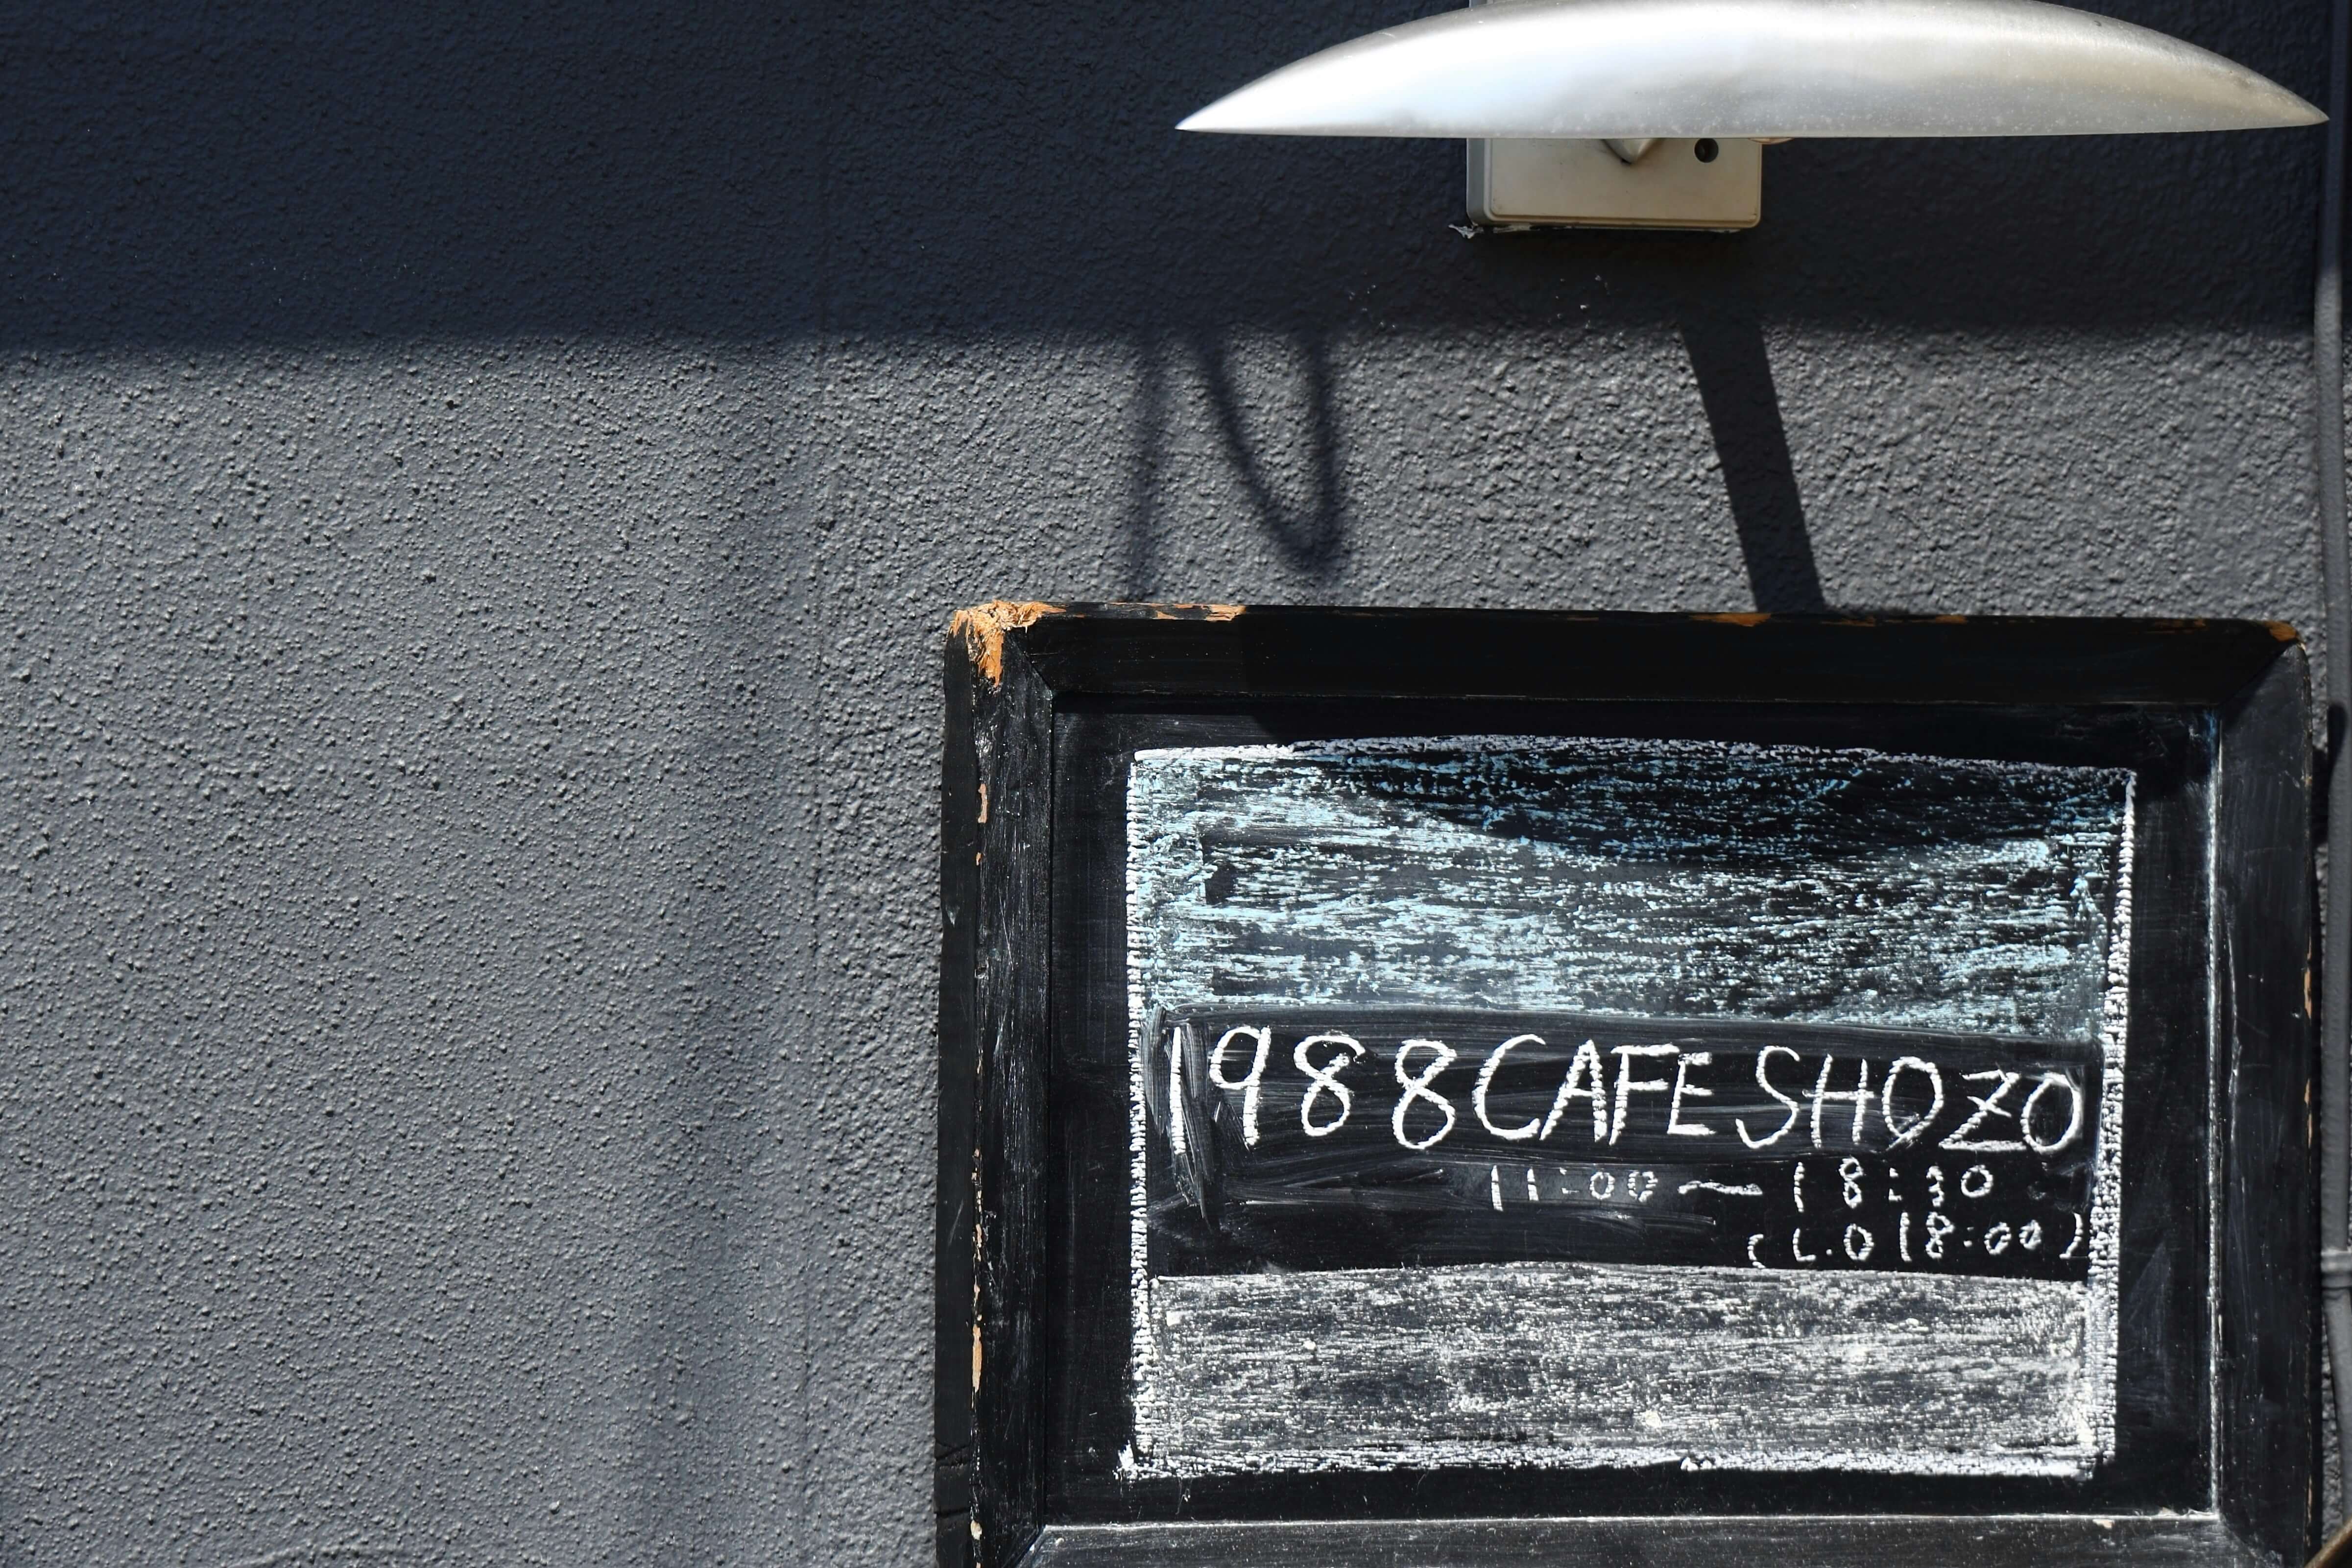 1988 CAFE SHOZO
11:00〜18:30
(L.O 18:00)